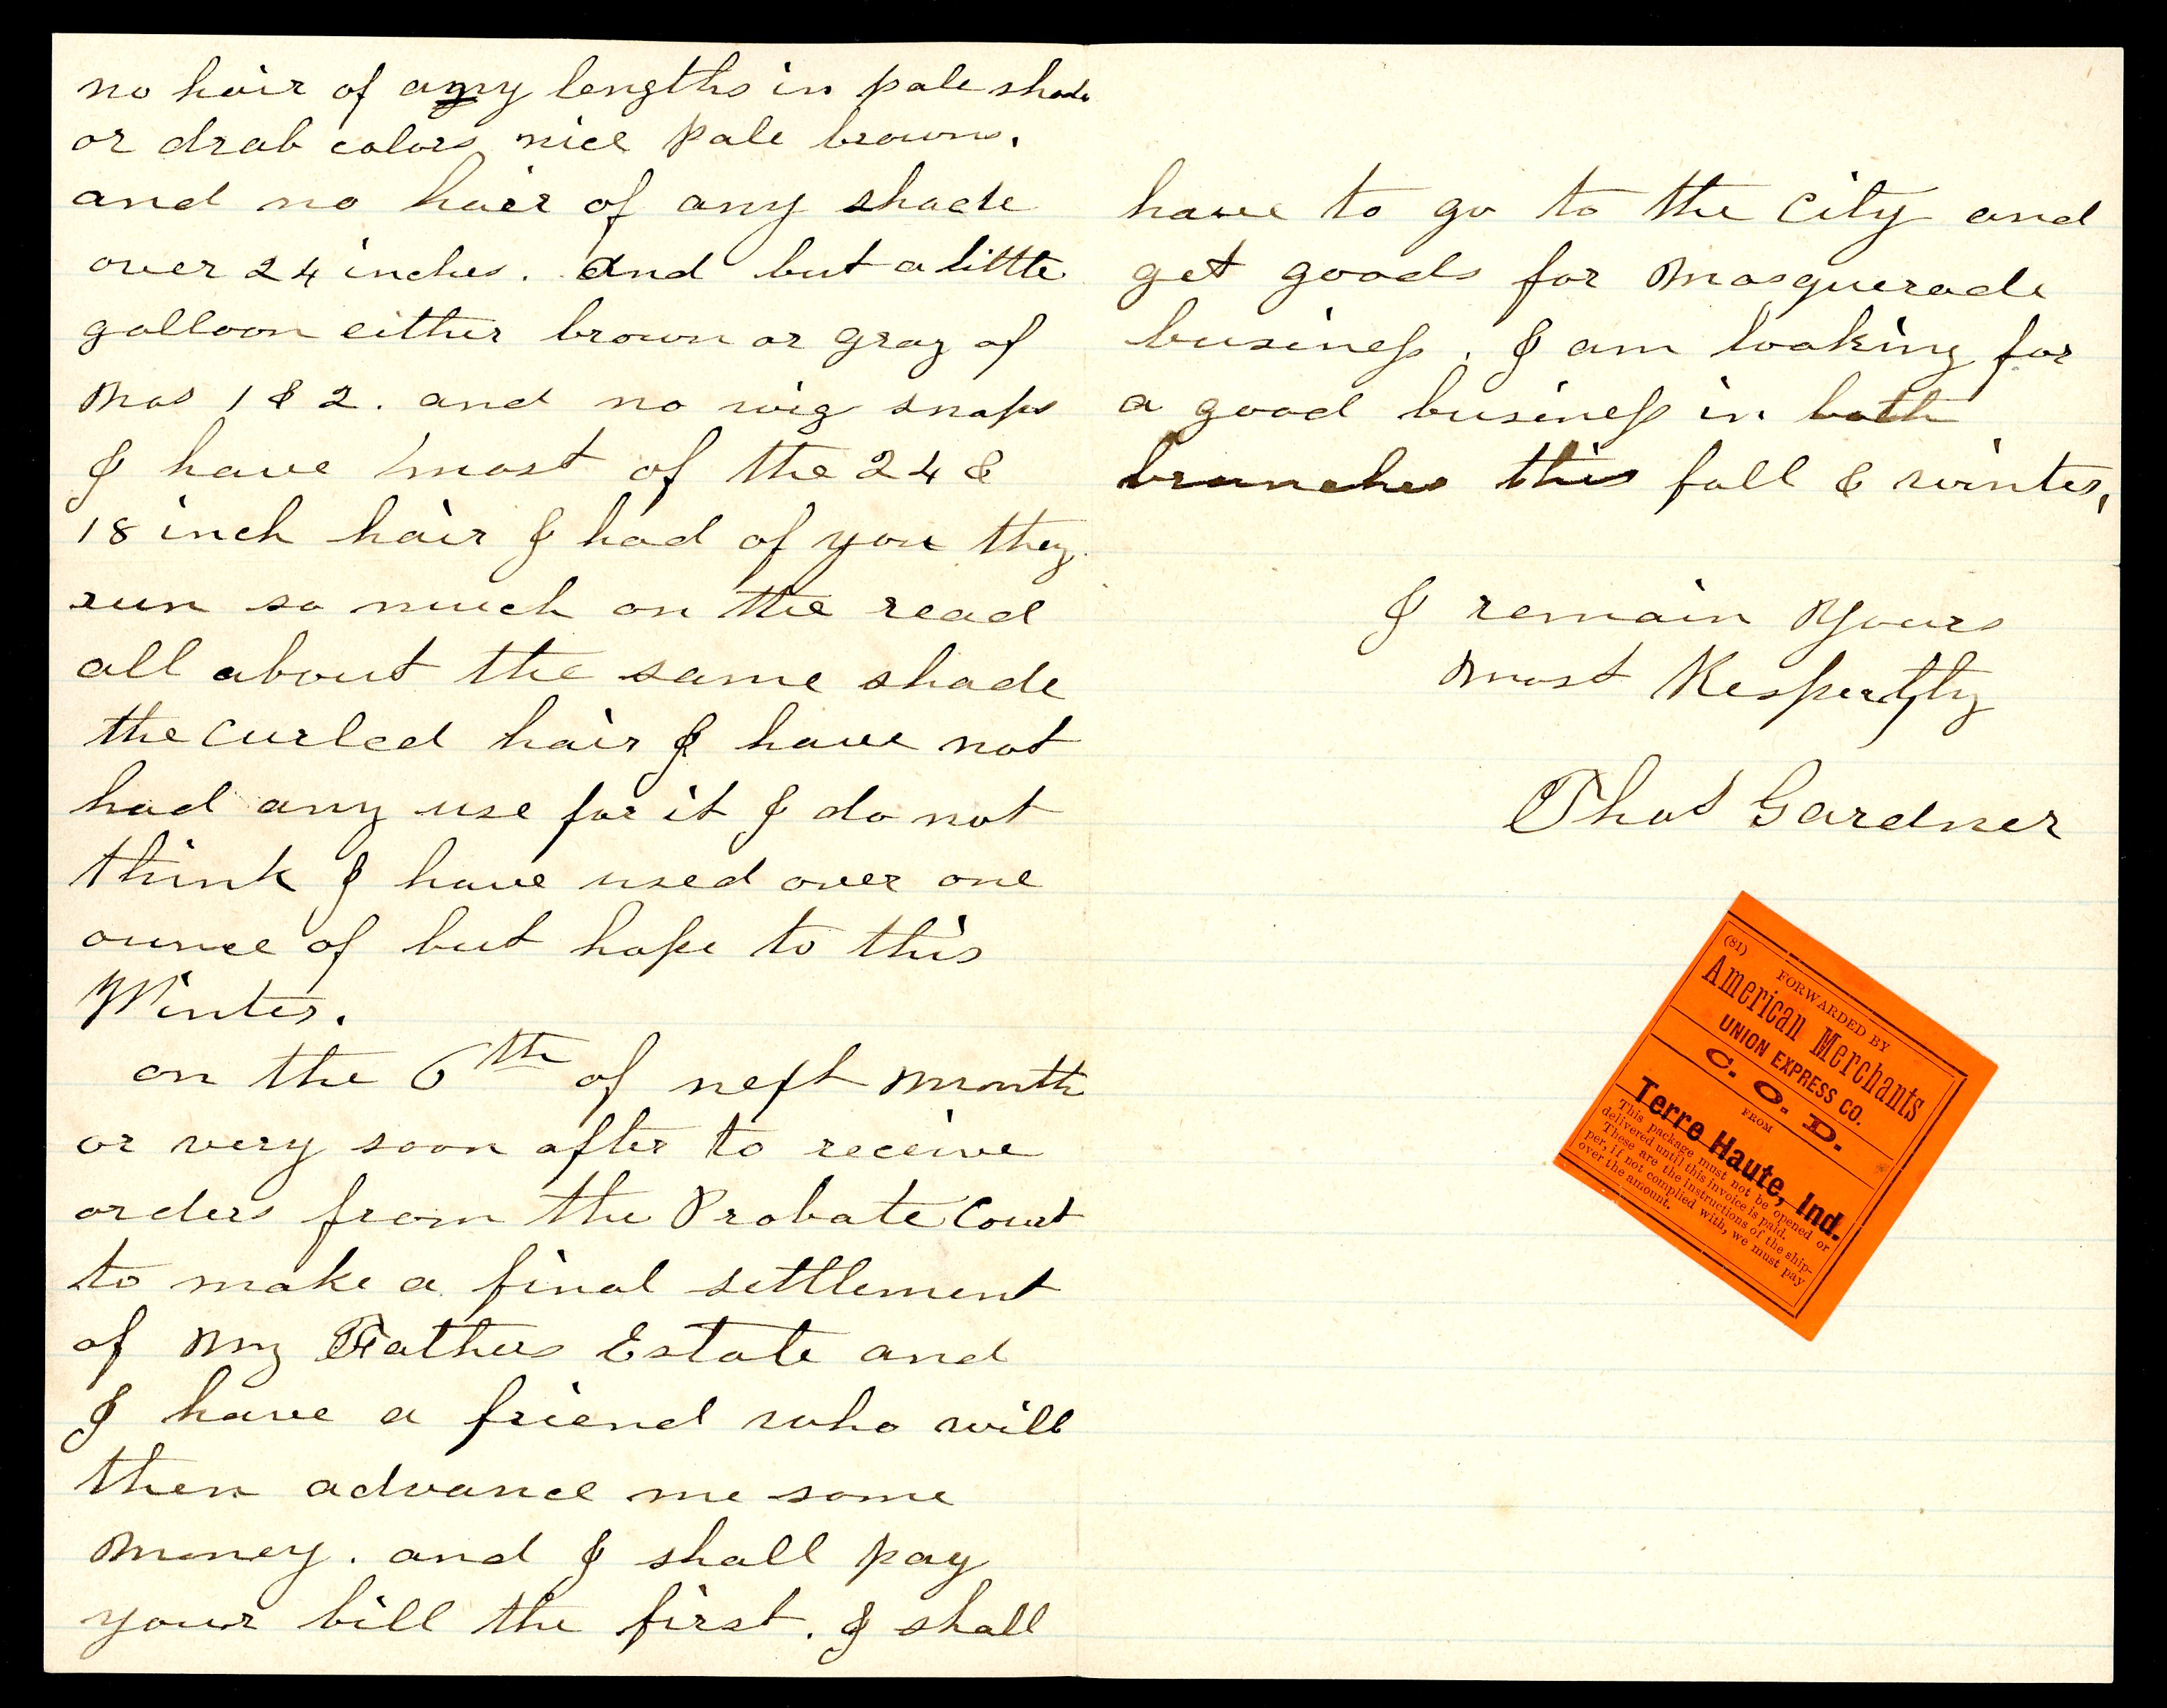 no hair of any lengths in pale shade
or drab colors nice pale browns.
and no hair of any shade
over 24 inches. and but a little
galloon either brown or gray of
Nos 1 & 2. and no wig snaps
I have most of the 24 &
18 inch hair I had of you they
run so much on the read
all about the same shade
the curled hair I have not
had any use for it I do not
think I have used over one
ounce of but hope to this
Winter.
on the 6th of next month
or very soon after to receive
orders from the Probate Court
to make a final settlement
of my Fathers Estate and
I have a friend who will
then advance me some
money. and I shall pay
your bill the first. I shall
have to go to the City and
get goods for Masquerade
business. I am looking for
a good business in both
branches this fall & winter,
I remain Yours
most
Thos Gardner
(81)
FORWARDED BY
American Merchants
UNION EXPRESS CO.
C. O. D.
FROM
Terre Haute, Ind.
This package must not be opened or
delivered until this invoice is paid.
These are the instructions of the ship-
per, if not complied with, we must pay
over the amount.